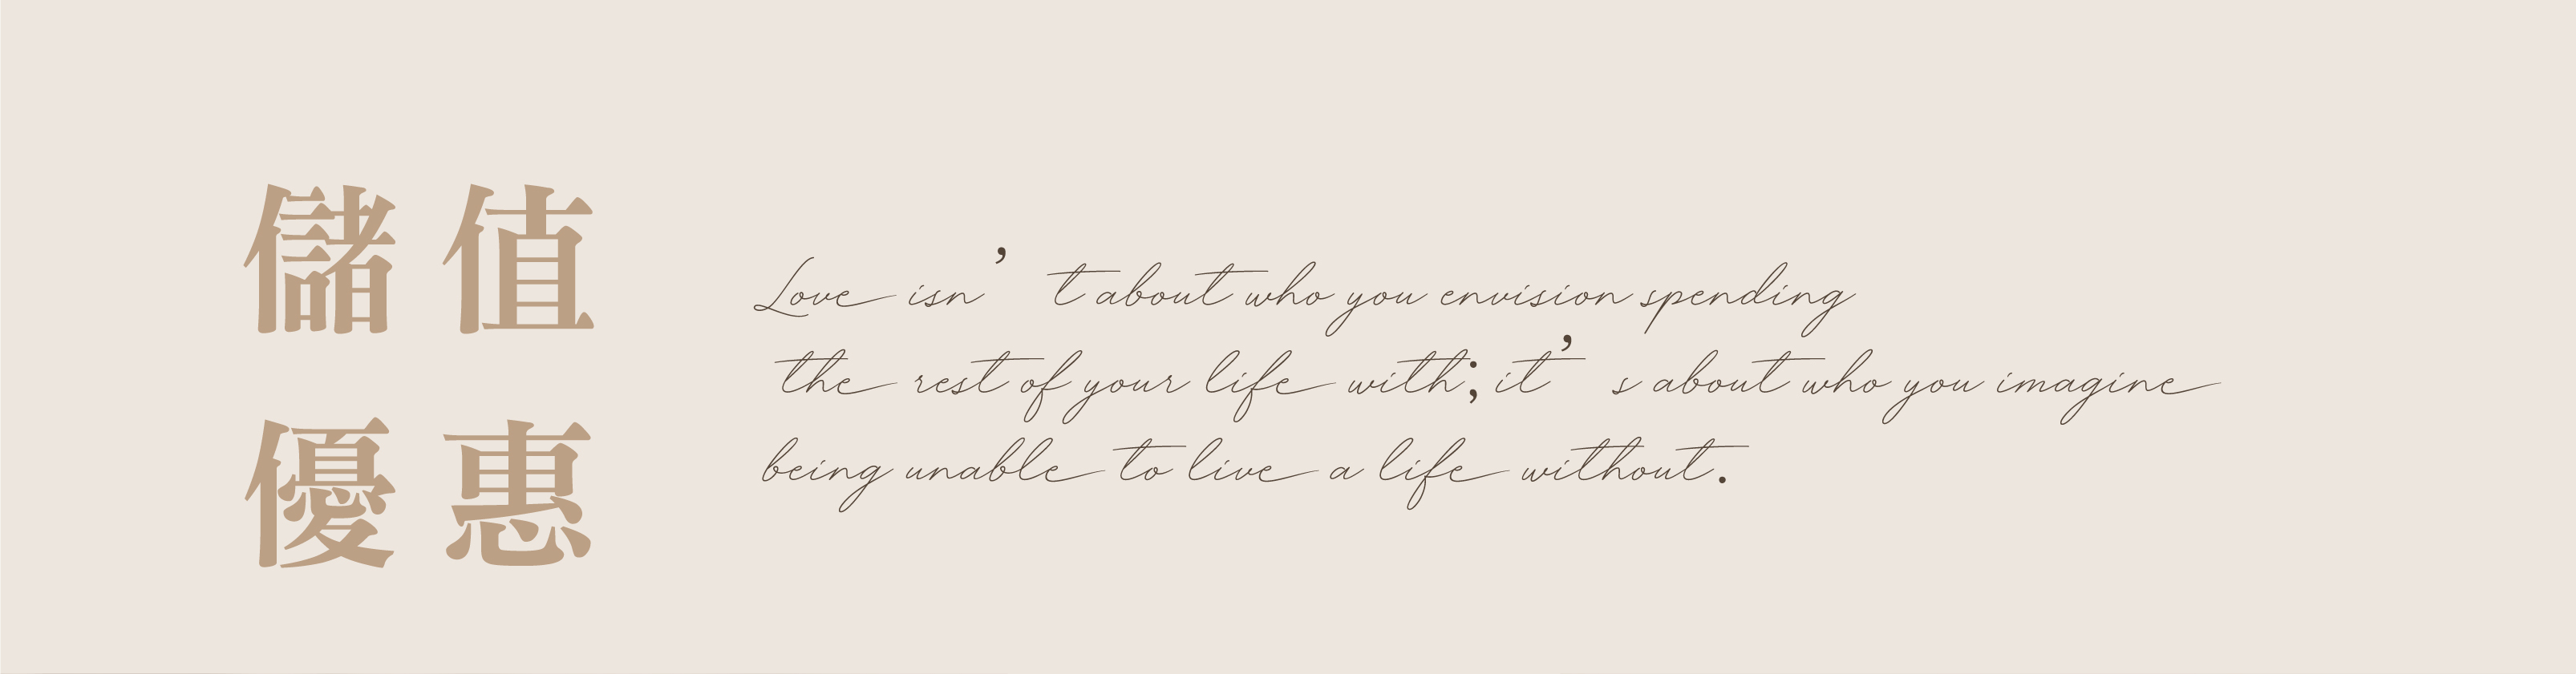 儲值
優惠
Love isn’t about who you envision spending
the rest of your life with; it’s about who you imagine
being unable to live a life without.